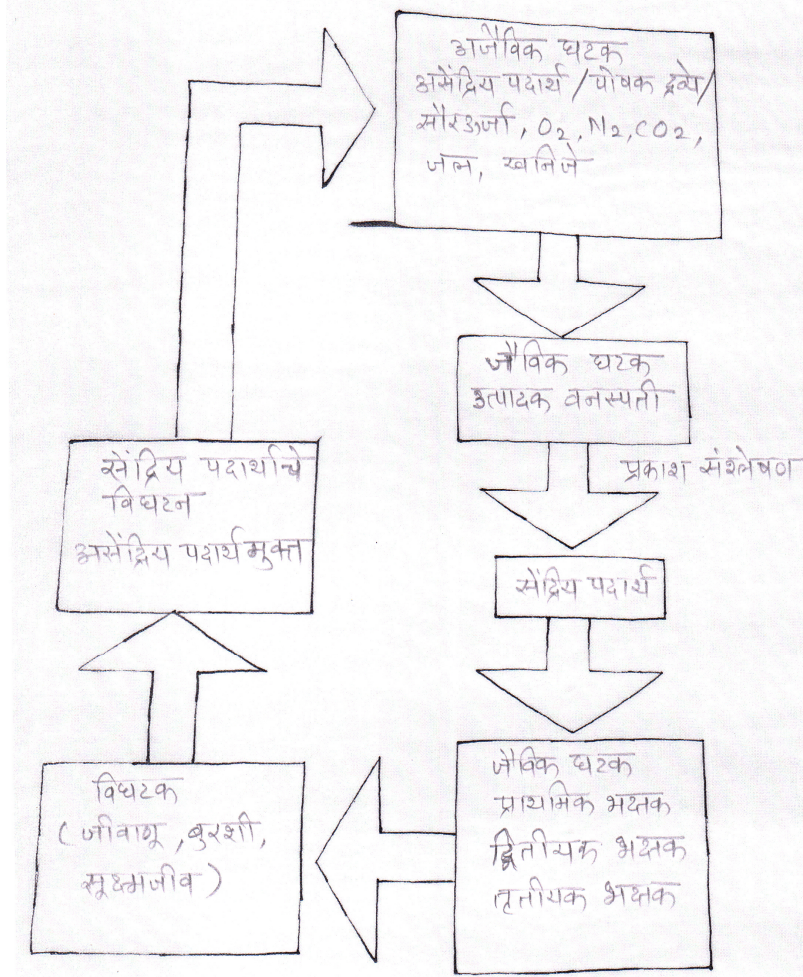 अजैविक घटक
असेंद्रिय पदार्थ / पोषक द्रव्ये /
सौरऊर्जा, O2, N2, CO2,
जल, खनिजे
जैविक घटक
उत्पादक वनस्पती
प्रकाश संश्लेषण
सेंद्रिय पदार्थ
जैविक घटक
प्राथमिक भक्षक
द्वितीयक भक्षक
तृतीयक भक्षक
विघटक
(जीवाणू, बुरशी,
सूक्ष्मजीव)
सेंद्रिय पदार्थाचे
विघटन
असेंद्रिय पदार्थ मुक्त